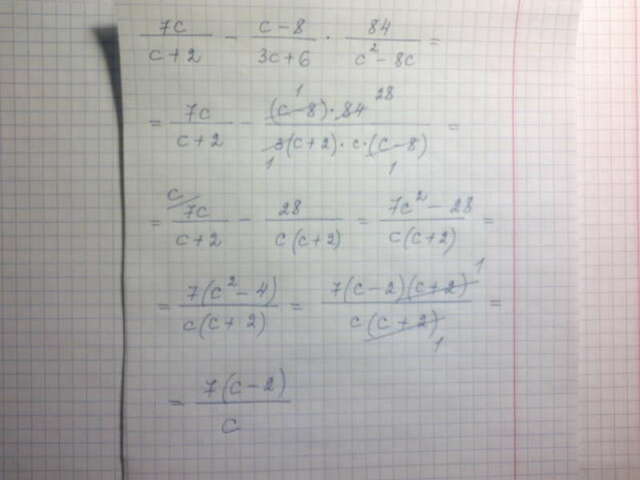 7c/(c+2) - (c-8)/(3c+6) · 84/(c²-8c) =
= 7c/(c+2) - ((c-8)·84)/(3(c+2)·c·(c-8)) = 1 28 1 1
= c 7c/(c+2) - 28/(c(c+2)) = (7c²-28)/(c(c+2)) =
= 7(c²-4)/(c(c+2)) = 7(c-2)(c+2)/(c(c+2)) = 1 1
= 7(c-2)/c